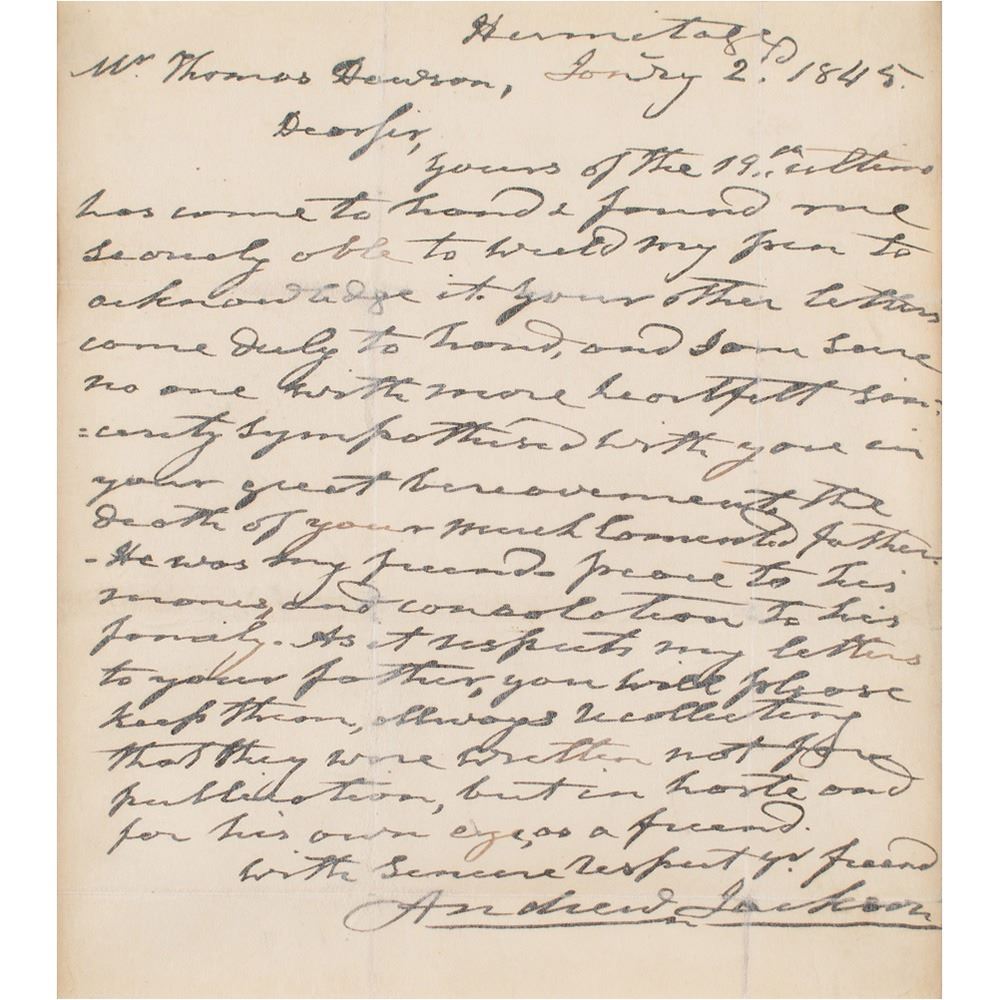 Hermitage
Mr. Thomas Dawson, Janry 2d. 1845.
Dear sir,
yours of the 19th. ultimo
has come to hand & found me
scarcely able to wield my pen to
acknowledge it. Your other letters
came duly to hand, and I am sure
no one with more heartfelt sin:
=cerity sympathised with you in
your great bereavement, the
death of your much lamented father.
- He was my friend. peace to his
manes, and consolation to his
family. - As it respects my letters
to your father, you will please
keep them, allways recollecting
that they were written not for
publication, but in haste and
for his own eye, as a friend.
with sincere respect yr. friend
Andrew Jackson